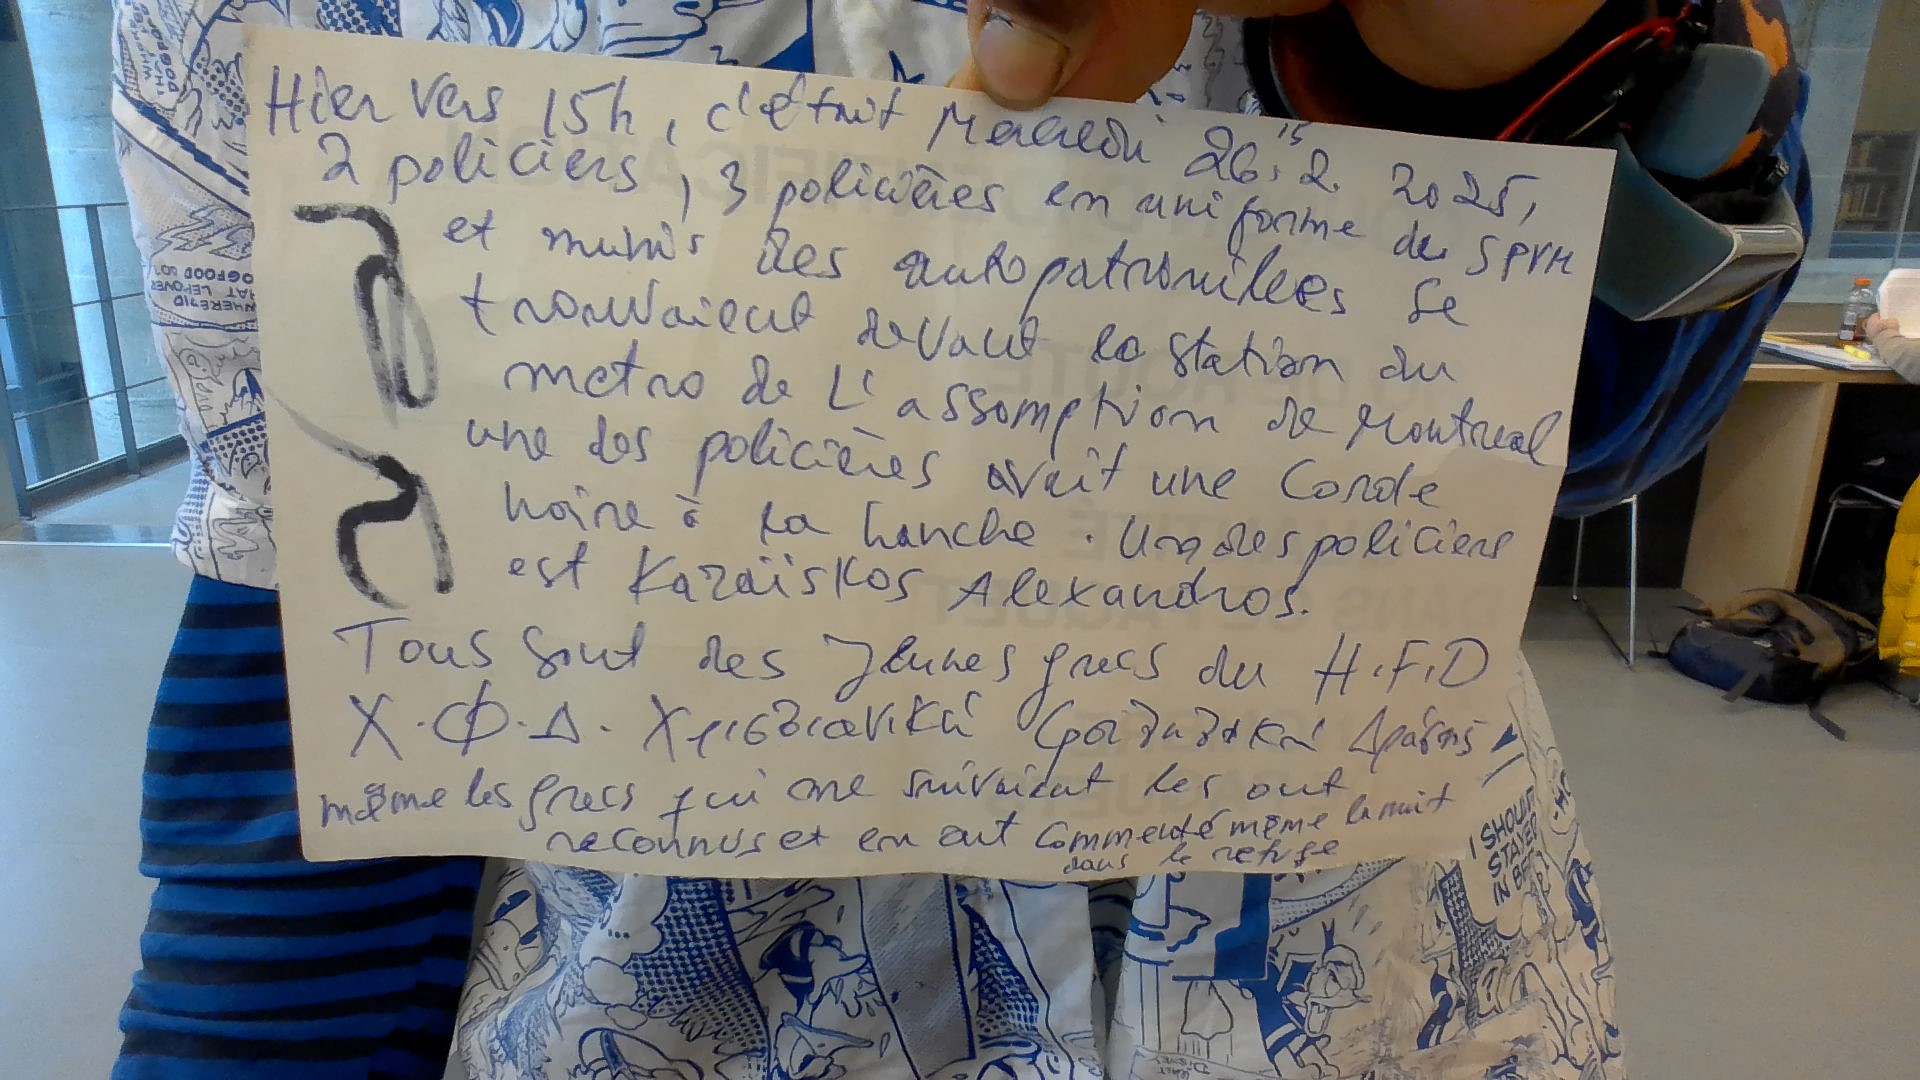 Hier vers 15h, c'était Mercredi 26.2. 2025,
15
2 policiers, 3 policières en uniforme du SPVM
et munis des autopatrouilles se
trouvaient devant la station du
metro de L'assomption de Montreal
une des policières avait une Corde
noire à la hanche. Un des policiers
est Karaïskos Alexandros.
Tous sont des Jeunes grecs du H.F.D
Χ.Φ.Δ. Χριστιανική Φοιτητική Δράσης
même les grecs qui me suivaient les ont
reconnus et en ont commenté même la nuit
dans le refuge
I SHOULD
STAYED
IN BE